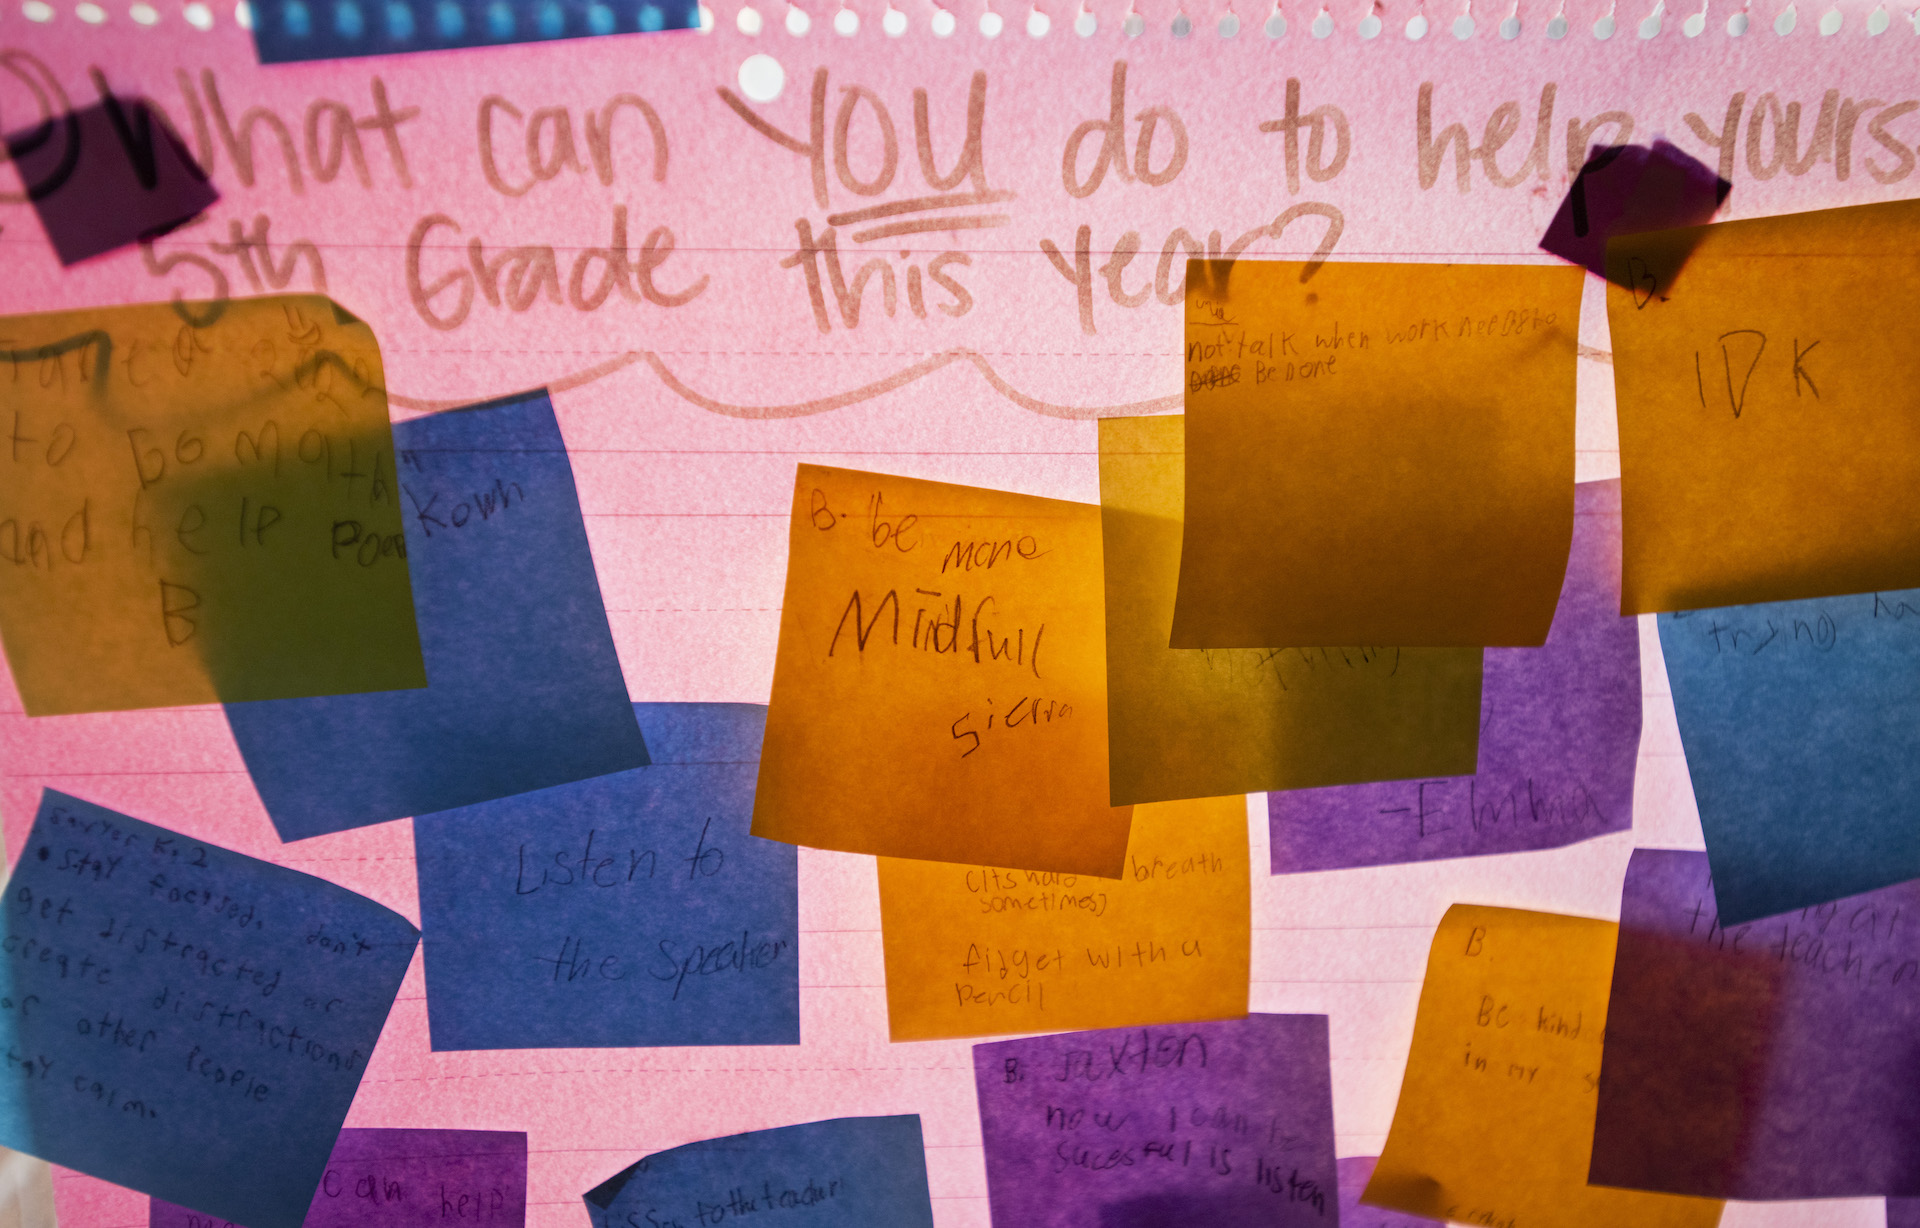 What can YOU do to help yours
5th Grade this year?
not talk when work needs to
Be Done
B.
IDK
Take a
to Go
and help
B
Kown
B. be more
Mindfull
sierra
trying
-Emma
Listen to
the Speaker
Sawyer K. 2
• Stay focused, don't
get distracted or
create distractions
other people
calm.
(its hard breath
sometimes)
fidget with a
pencil
B.
Be kind
in my
the teacher
B. Jaxten
how I can be
sucesful is listen
can help
to the teacher